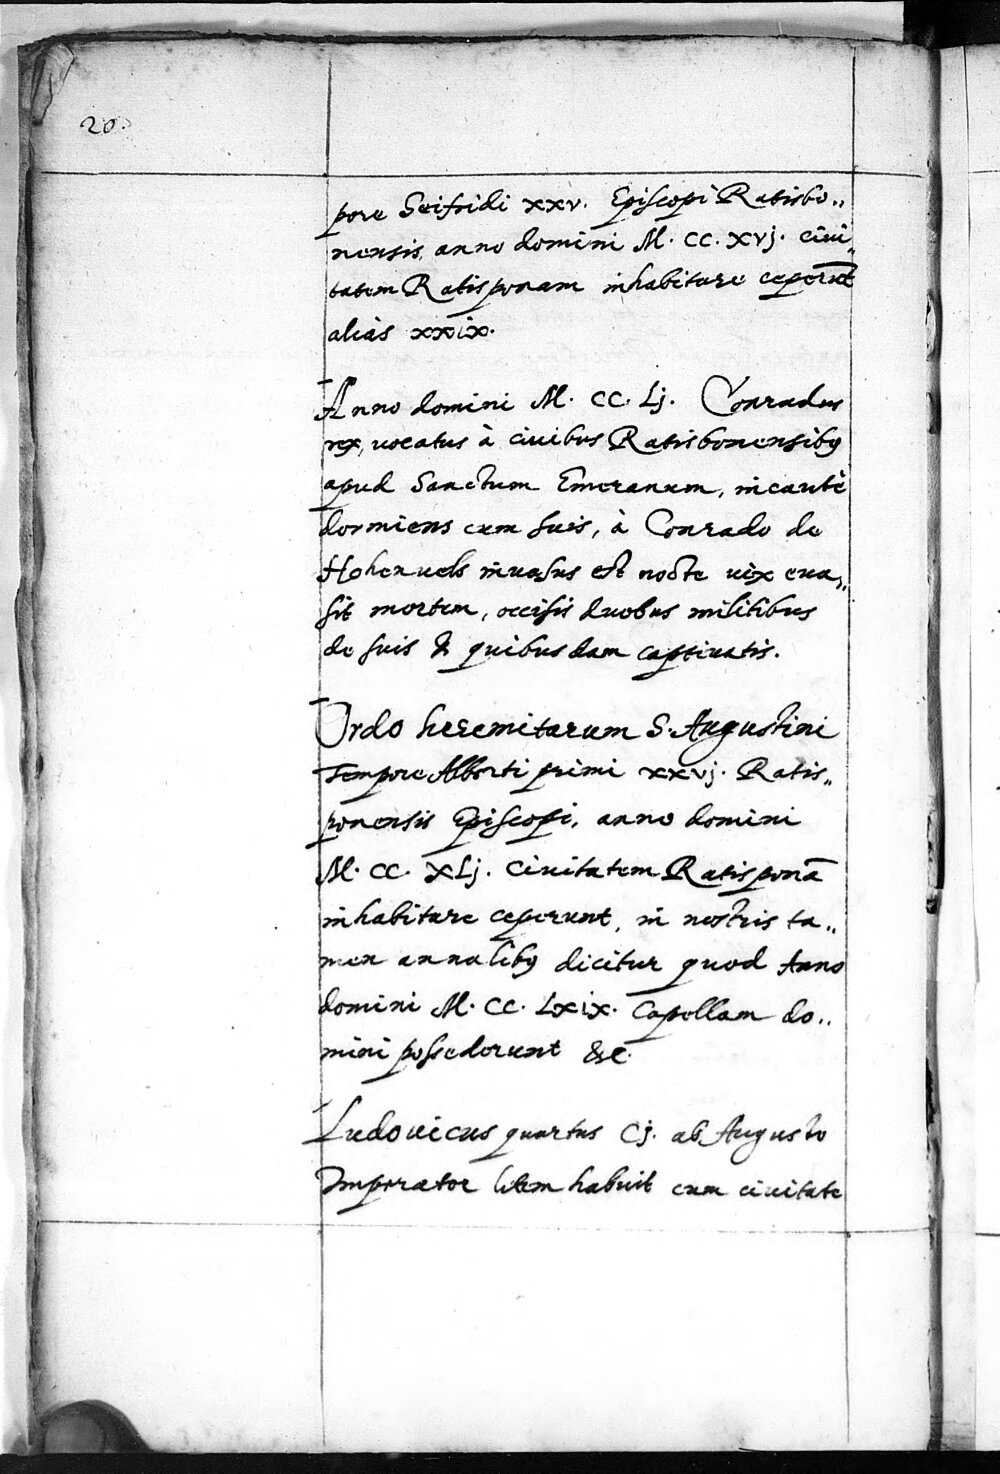 20.
pore Seifridi xxv. Episcopi Ratisbo„
nensis, anno domini M. CC. xvj. civi„
tatem Ratisponam inhabitare ceperūt
aliàs xxix.
Anno domini M. CC. Lj. Conradus
rex, uocatus à ciuibus Ratisbonensibꝫ
apud Sanctum Emeranum, incautè
dormiens cum suis, à Conrado de
Hohenuels inuasus est nocte uix eua„
sit mortem, occisis duobus militibus
de suis & quibusdam captiuatis.
Ordo heremitarum S. Augustini
Tempore Alberti primi xxvj. Ratis„
ponensis Episcopi, anno domini
M. CC. XLj. Ciuitatem Ratisponā
inhabitare ceperunt, in nostris ta„
men annalibꝫ dicitur quod Anno
domini M. CC. Lxix. Capellam do„
mini possederunt &c.
Ludouicus quartus Cj. ab Augusto
Imperator litem habuit cum ciuitate